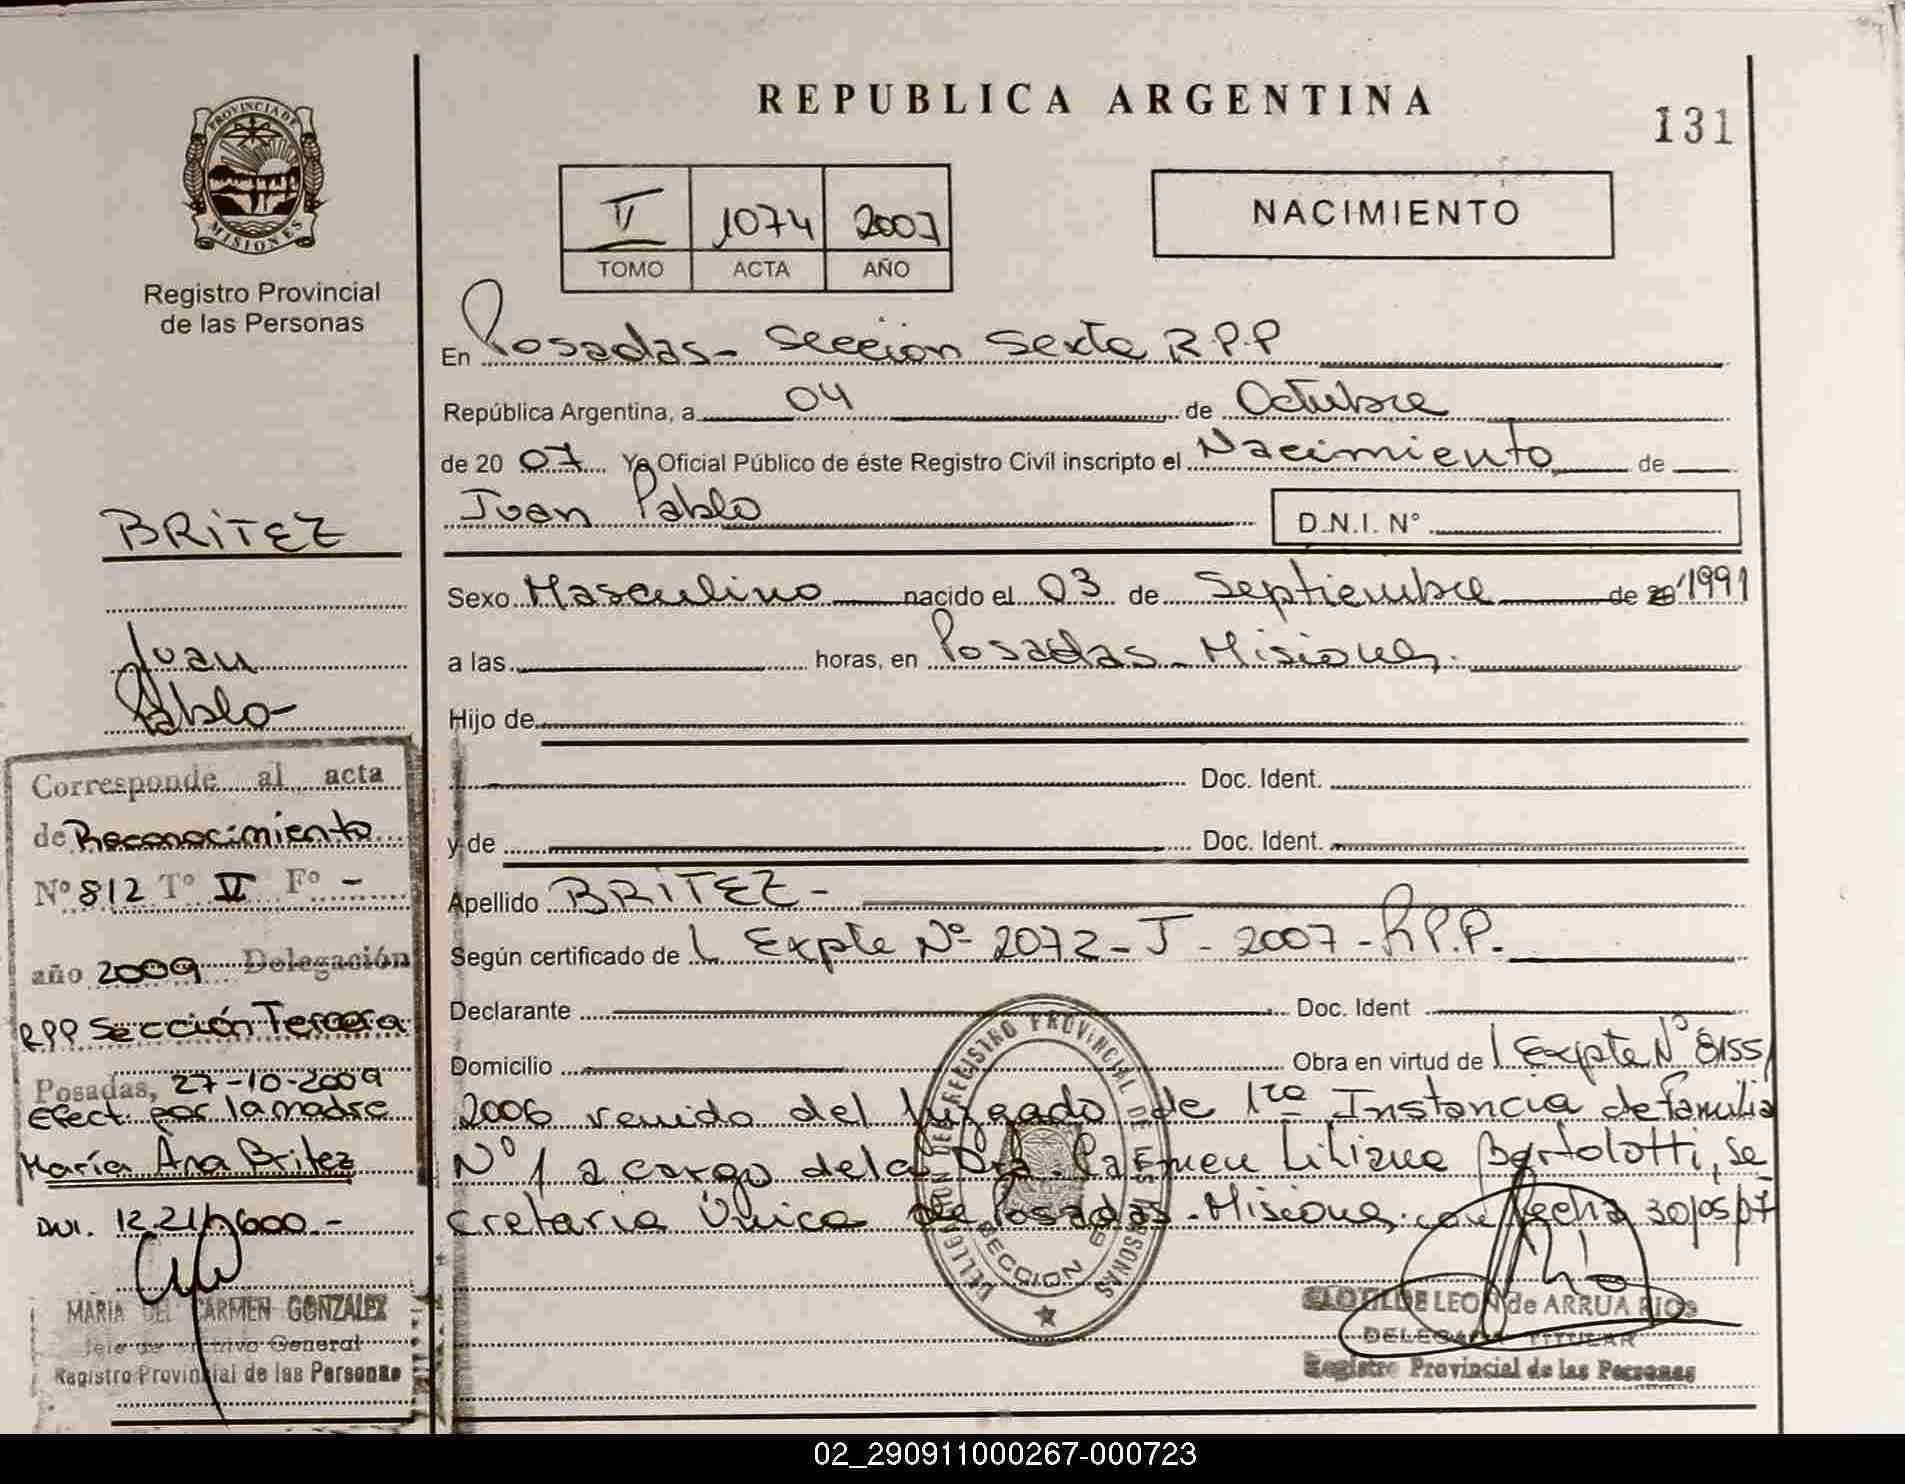 REPUBLICA ARGENTINA
131
PROVINCIA DE
MISIONES
Registro Provincial
de las Personas
II 1074 2007
TOMO ACTA AÑO
NACIMIENTO
En Posadas - Sección Sexta R.P.P
República Argentina, a 04 de Octubre
de 20 07 Yo Oficial Público de éste Registro Civil inscripto el Nacimiento de
Juan Pablo
D.N.I. N°
Sexo Masculino nacido el 03 de Septiembre de 1991
a las horas, en Posadas - Misiones.
Hijo de
Doc. Ident.
y de Doc. Ident.
Apellido BRITEZ -
Según certificado de Expte Nº 2072 - J - 2007 - R.P.P.
Declarante Doc. Ident
Domicilio Obra en virtud de Expte Nº 8155/
2006 venido del Juzgado de 1ra Instancia de familia
Nº 1 a cargo de la Dra. Carmen Liliana Bartolotti, Se
cretaria Única de Posadas - Misiones. con fecha 30/05/07
DELEGACION DEL REGISTRO PROVINCIAL DE LAS PERSONAS
SECCION 6
CLOTILDE LEON de ARRUA RIOS
DELEGADA TITULAR
Registro Provincial de las Personas
BRITEZ
Juan
Pablo -
Corresponde al acta
de Reconocimiento
Nº 812 Tº IV Fº -
año 2009 Delegación
RPP Sección Tercera
Posadas, 27-10-2009
Efect. por la madre
María Ana Britez
DNI.
MARIA DEL CARMEN GONZALEZ
Jefe de Archivo General
Registro Provincial de las Personas
02_290911000267-000723